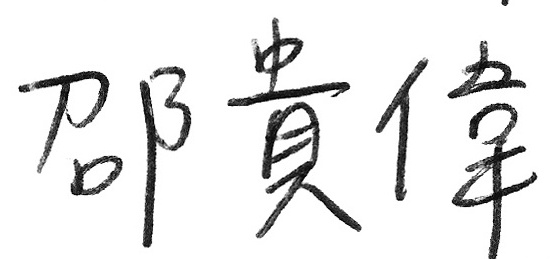 邵貴偉